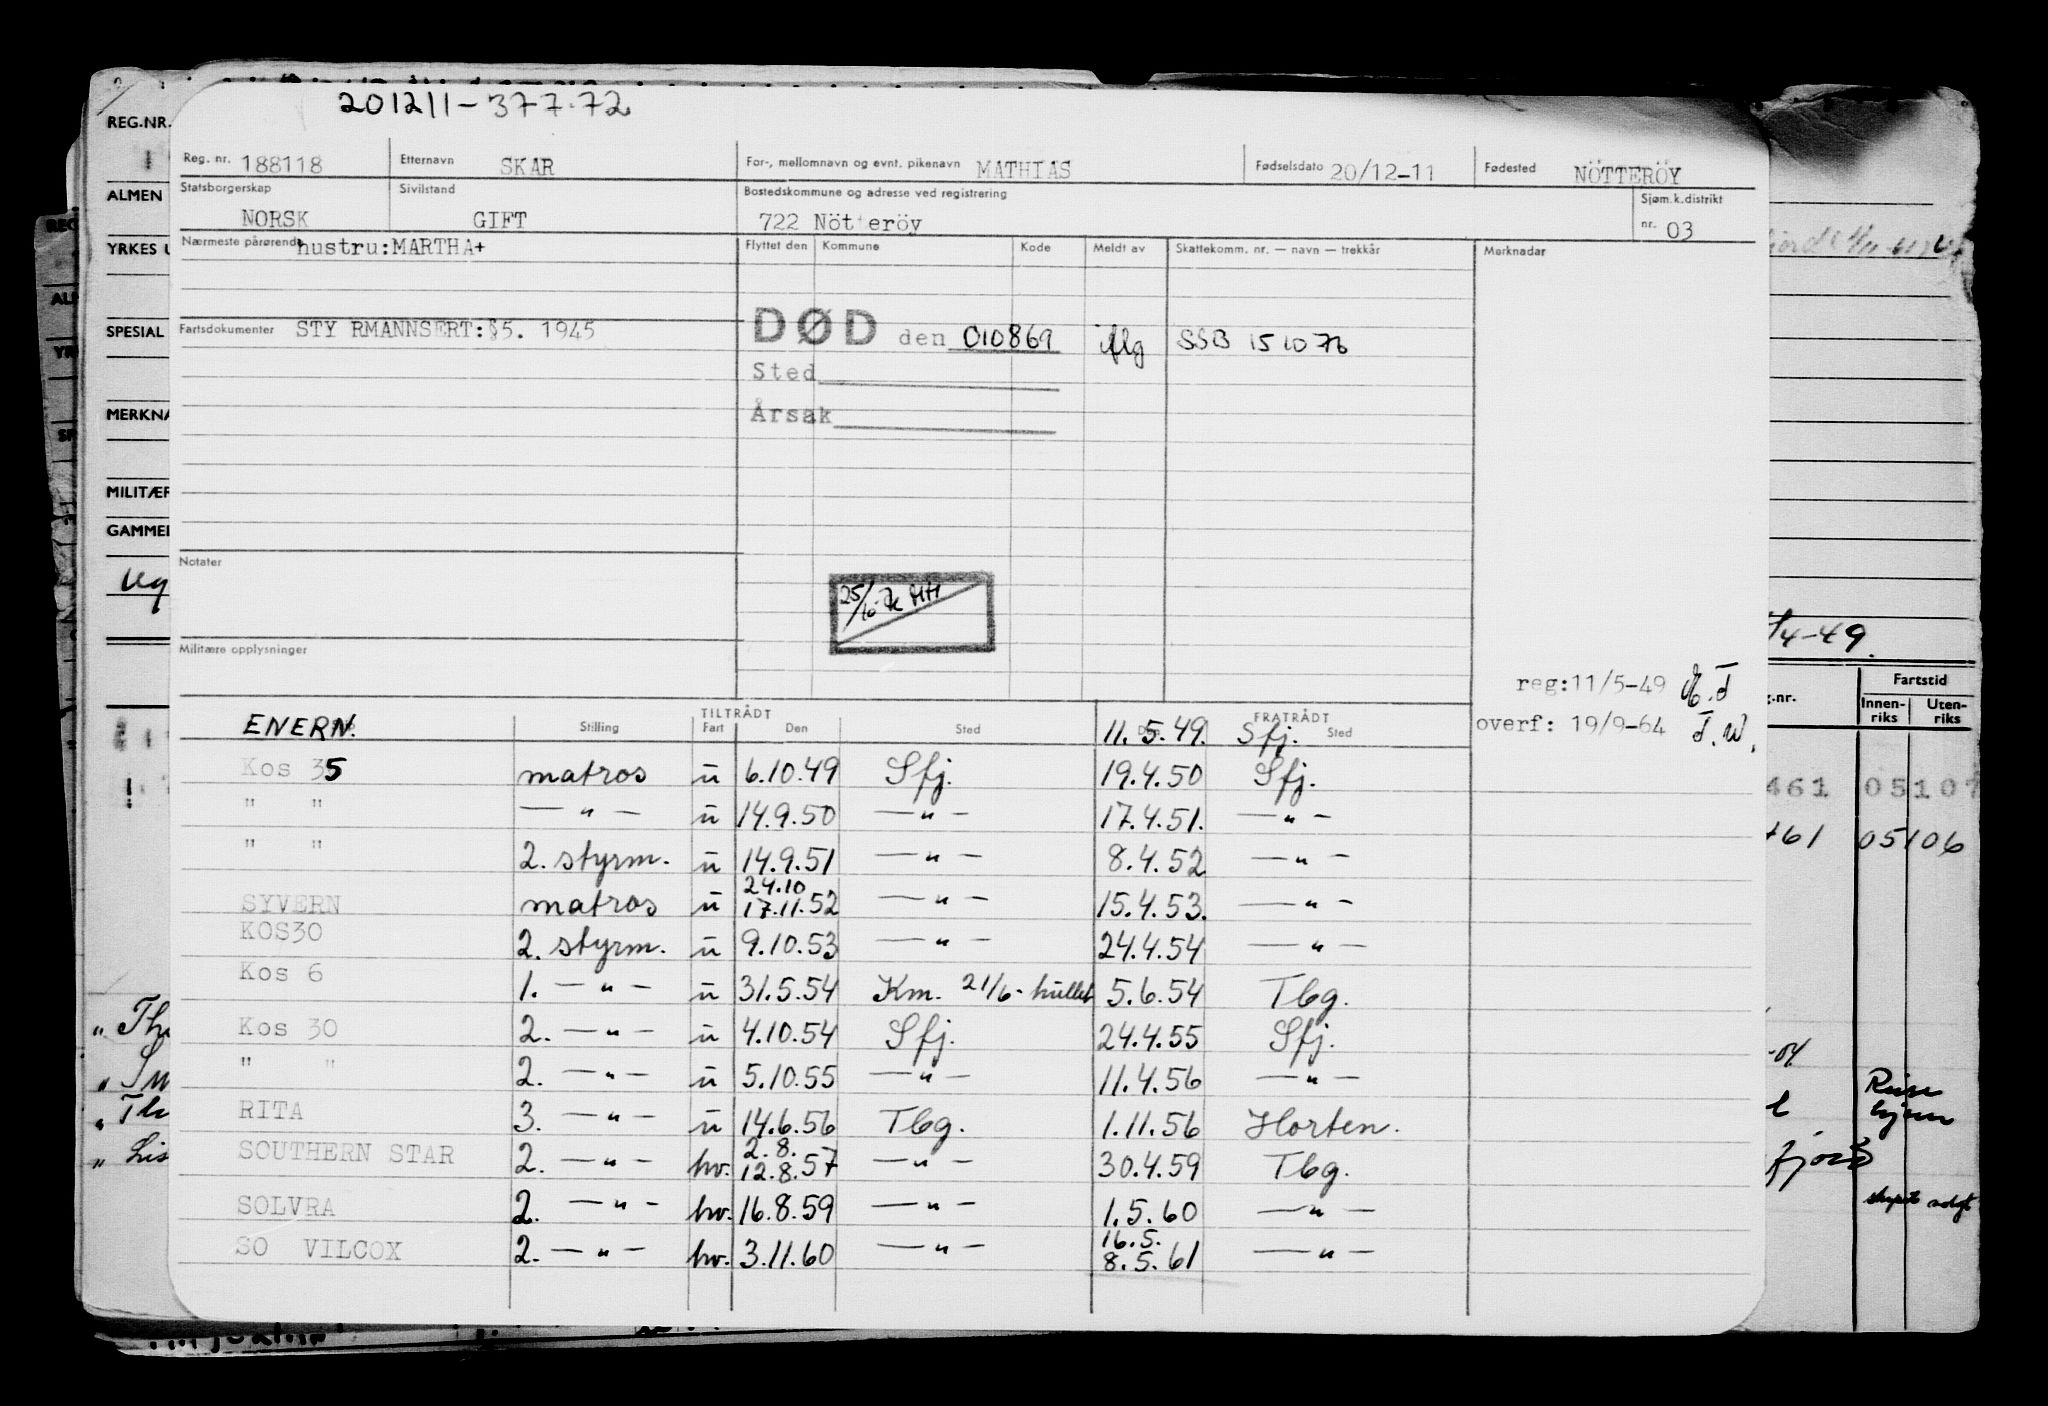 201211-377.72
REG.NR.
Reg. nr. 188118 Etternavn SKAR For-, mellomnavn og evnt. pikenavn MATHIAS Fødselsdato 20/12-11 Fødested NÖTTERÖY
ALMEN Statsborgerskap NORSK Sivilstand GIFT Bostedskommune og adresse ved registrering 722 Nötteröy Sjøm.k.distrikt nr. 03
YRKES Nærmeste pårørende hustru: MARTHA+ Flyttet den Kommune Kode Meldt av Skattekomm. nr. — navn — trekkår Merknadar
SPESIAL Fartsdokumenter STY RMANNSERT:§5. 1945 DØD den 010869 iflg SSB 151076
Sted
MERKNA Årsak
MILITÆR
GAMMEL
Notater
25/10-76 HH
Militære opplysninger
4-49.
reg:11/5-49
overf: 19/9-64 T.W.
g.nr. Fartstid
Innen-riks Uten-riks
TILTRÅDT FRATRÅDT
ENERN. Stilling Fart Den Sted 11.5.49. Sfj. Sted
Kos 35 matros u 6.10.49 Sfj. 19.4.50 Sfj.
" " — " — u 14.9.50 — " — 17.4.51. — " —
" " 2. styrm. u 14.9.51 — " — 8.4.52 — " —
SYVERN matros u 24.10 17.11.52 — " — 15.4.53. — " —
KOS30 2. styrm. u 9.10.53 — " — 24.4.54 — " —
Kos 6 1. — " — u 31.5.54 Km. 21/6- 5.6.54 Tbg.
Kos 30 2. — " — u 4.10.54 Sfj. 24.4.55 Sfj.
" " 2. — " — u 5.10.55 — " — 11.4.56 — " —
RITA 3. — " — u 14.6.56 Tbg. 1.11.56 Horten.
SOUTHERN STAR 2. — " — hv. 2.8. 12.8.57 — " — 30.4.59 Tbg.
SOLVRA 2. — " — hv. 16.8.59 — " — 1.5.60 — " —
SO VILCOX 2. — " — hv. 3.11.60 — " — 16.5. 8.5.61 — " —
461 05107
461 05106